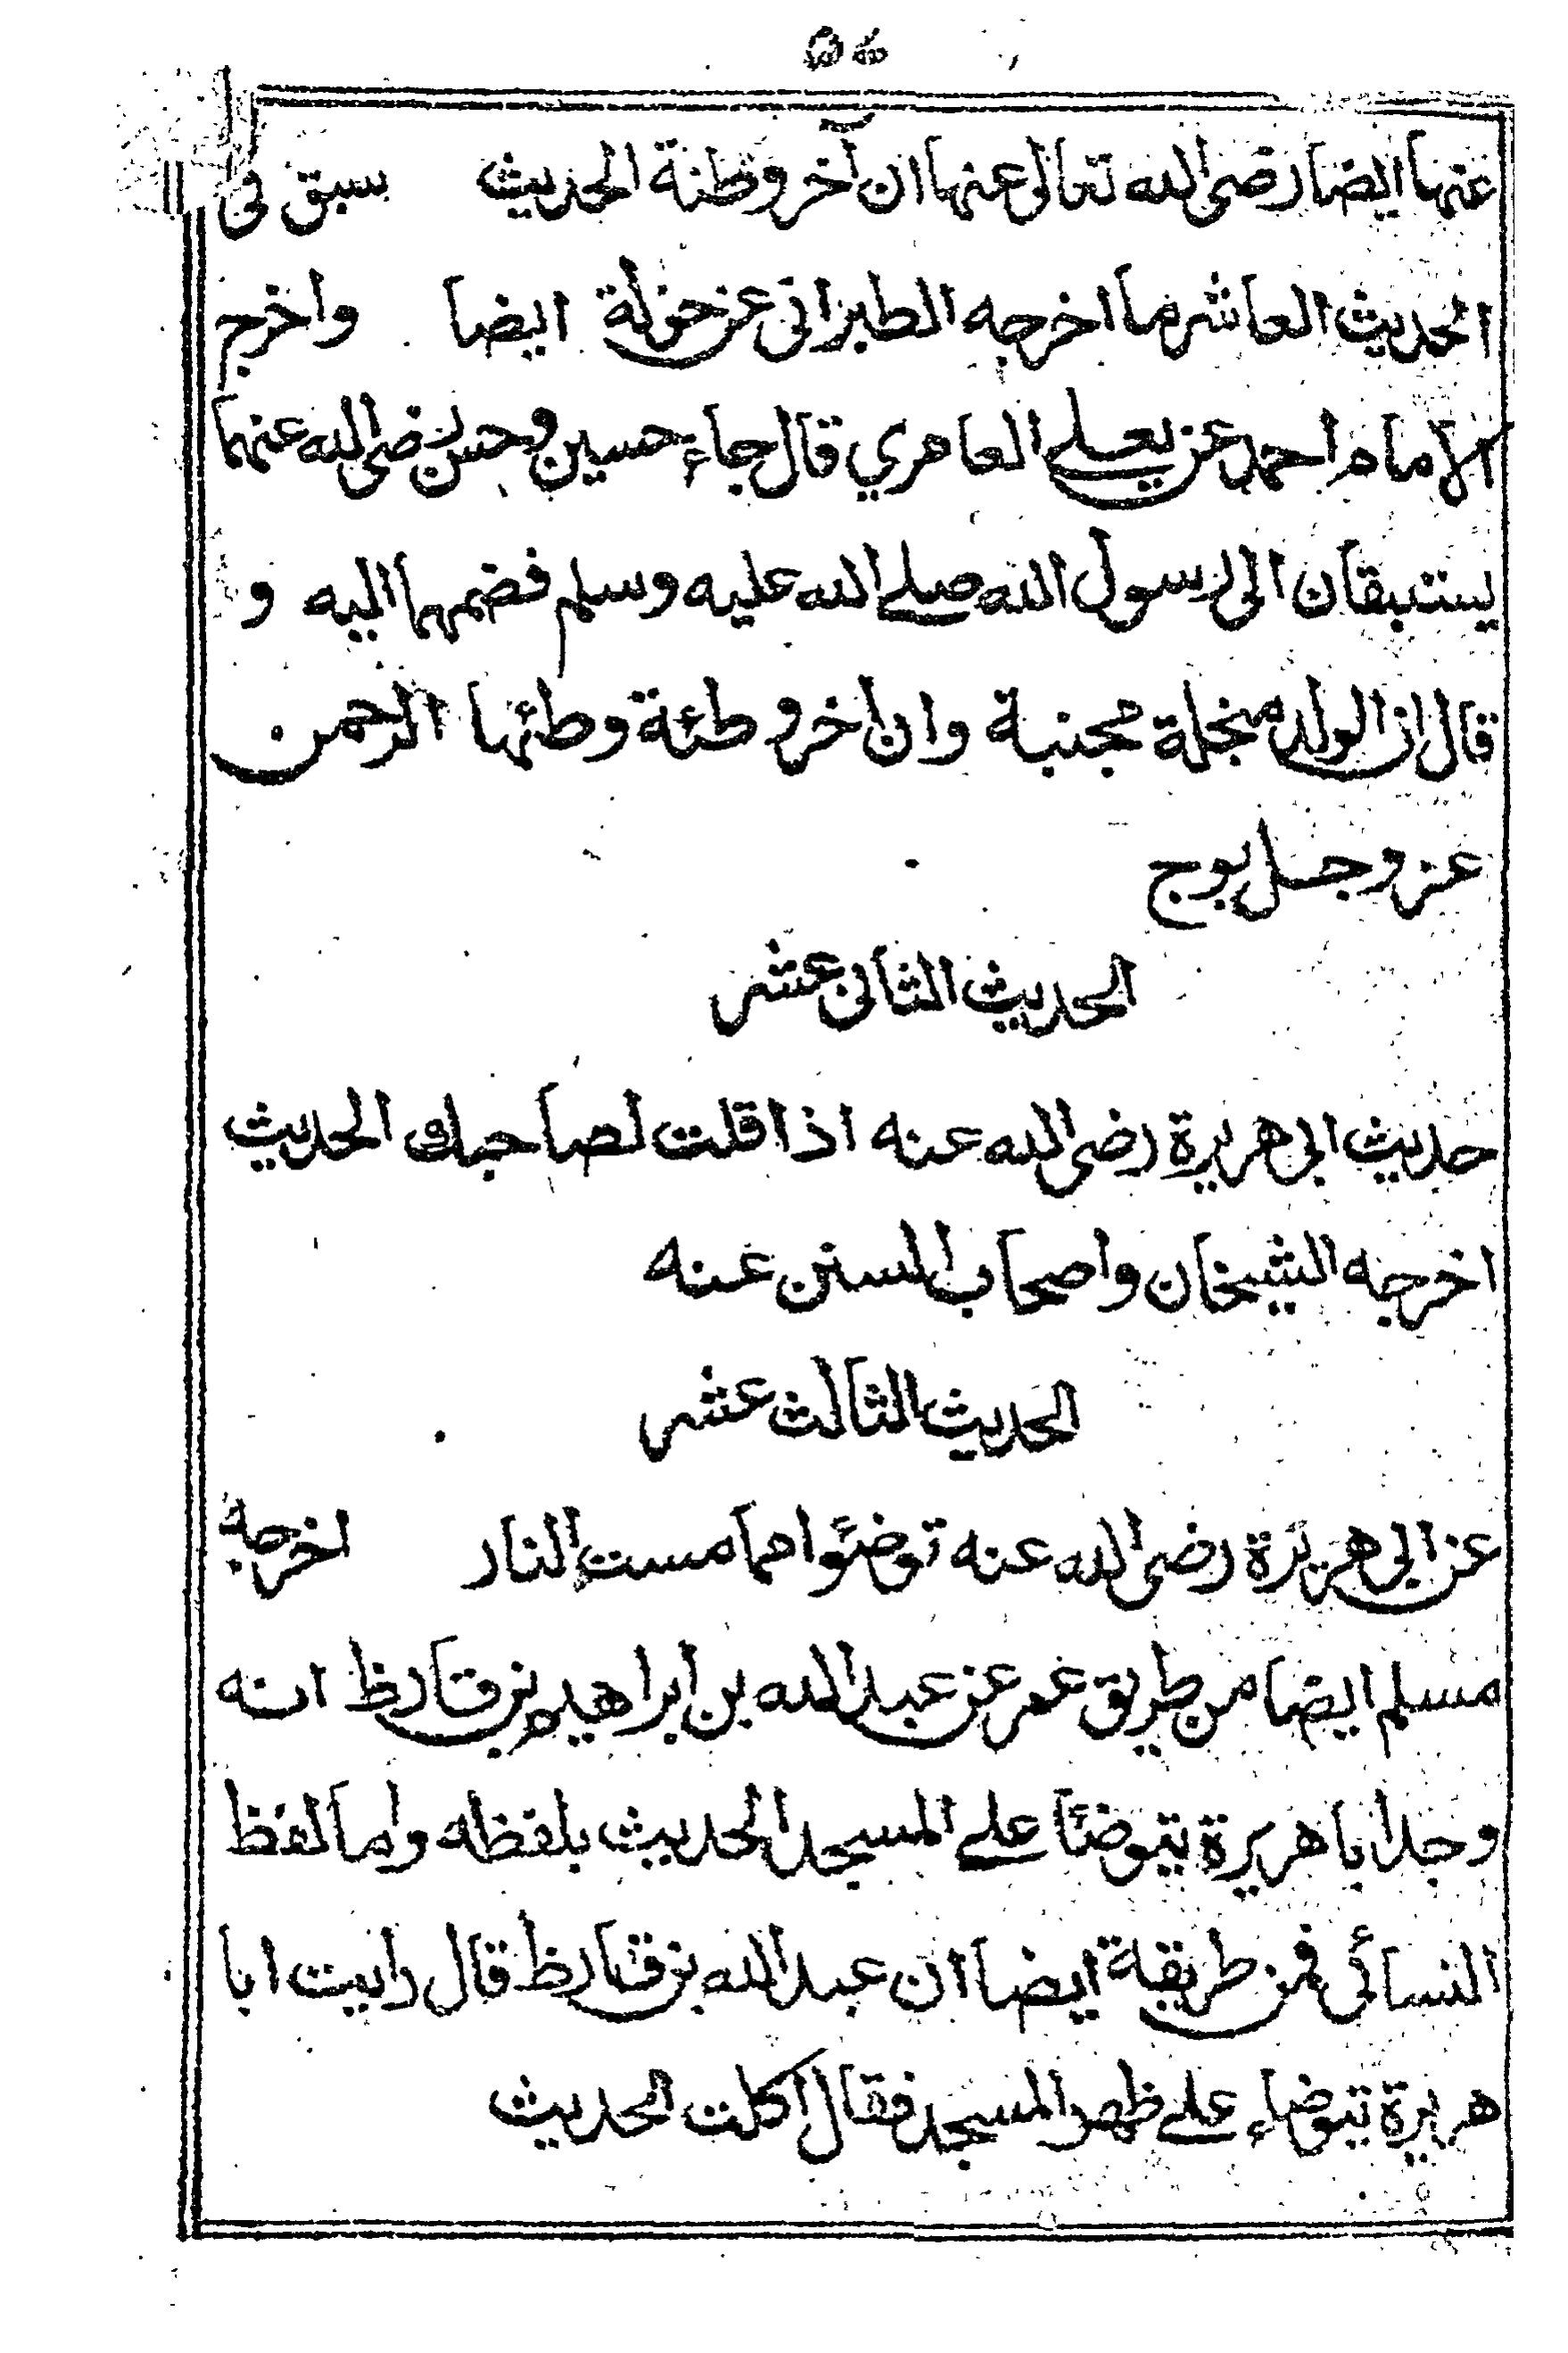 عنها ايضا رضى الله تعالى عنها ان آخر وطئة الحديث سبق فى
الحديث العاشر ما اخرجه الطبرانى عن خولة ايضا واخرج
الامام احمد عن يعلى العامري قال جاء حسين وحسن رضى الله عنهما
يستبقان الى رسول الله صلى الله عليه وسلم فضمهما اليه و
قال ان الولد مبخلة مجبنة وان اخر وطئة وطئها الرحمن
عز وجل بوج
الحديث الثانى عشر
حديث ابى هريرة رضى الله عنه اذا قلت لصاحبك الحديث
اخرجه الشيخان واصحاب السنن عنه
الحديث الثالث عشر
عن ابى هريرة رضى الله عنه توضئوا مما مست النار اخرجه
مسلم ايضا من طريق عمر عن عبد الله بن ابراهيم بن قارظ انه
وجد ابا هريرة يتوضئا على المسجد الحديث بلفظه واما لفظ
النسائى فمن طريقة ايضا ان عبد الله بن قارظ قال رايت ابا
هريرة يتوضاء على ظهر المسجد فقال اكلت الحديث